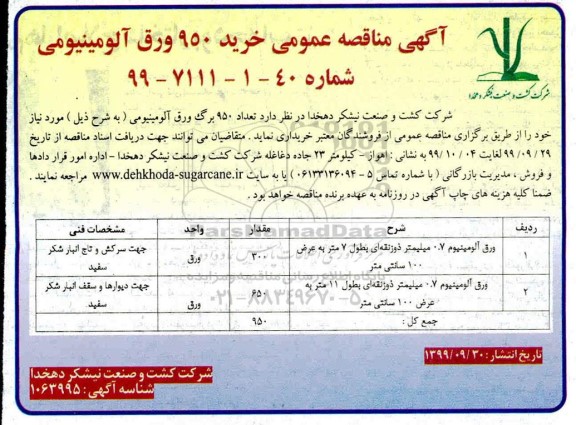 آگهی مناقصه عمومی خرید ۹۵۰ ورق آلومینیومی
شماره ۴۰-۱-۷۱۱۱-۹۹
شرکت کشت و صنعت نیشکر دهخدا
شرکت کشت و صنعت نیشکر دهخدا در نظر دارد تعداد ۹۵۰ برگ ورق آلومینیومی ( به شرح ذیل ) مورد نیاز
خود را از طریق برگزاری مناقصه عمومی از فروشندگان معتبر خریداری نماید . متقاضیان می توانند جهت دریافت اسناد مناقصه از تاریخ
۹۹/۰۹/۲۹ لغایت ۹۹/۱۰/۰۴ به نشانی : اهواز - کیلومتر ۲۳ جاده دغاغله شرکت کشت و صنعت نیشکر دهخدا - اداره امور قرار دادها
و فروش ، مدیریت بازرگانی ( با شماره تماس ۵-۰۶۱۳۳۱۳۶۰۹۴) یا به سایت www.dehkhoda-sugarcane.ir مراجعه نمایند .
ضمنا کلیه هزینه های چاپ آگهی در روزنامه به عهده برنده مناقصه خواهد بود .
ردیف شرح مقدار واحد مشخصات فنی
۱ ورق آلومینیوم ۰.۷ میلیمتر ذوزنقه‌ای بطول ۷ متر به عرض ۱۰۰ سانتی متر ۳۰۰ ورق جهت سرکش و تاج انبار شکر سفید
۲ ورق آلومینیوم ۰.۷ میلیمتر ذوزنقه‌ای بطول ۱۱ متر به عرض ۱۰۰ سانتی متر ۶۵۰ ورق جهت دیوارها و سقف انبار شکر سفید
جمع کل : ۹۵۰
۰۲۱-۸۸۳۴۹۶۷۰-۵
تاریخ انتشار : ۱۳۹۹/۰۹/۳۰
شرکت کشت و صنعت نیشکر دهخدا
شناسه آگهی : ۱۰۶۳۹۹۵